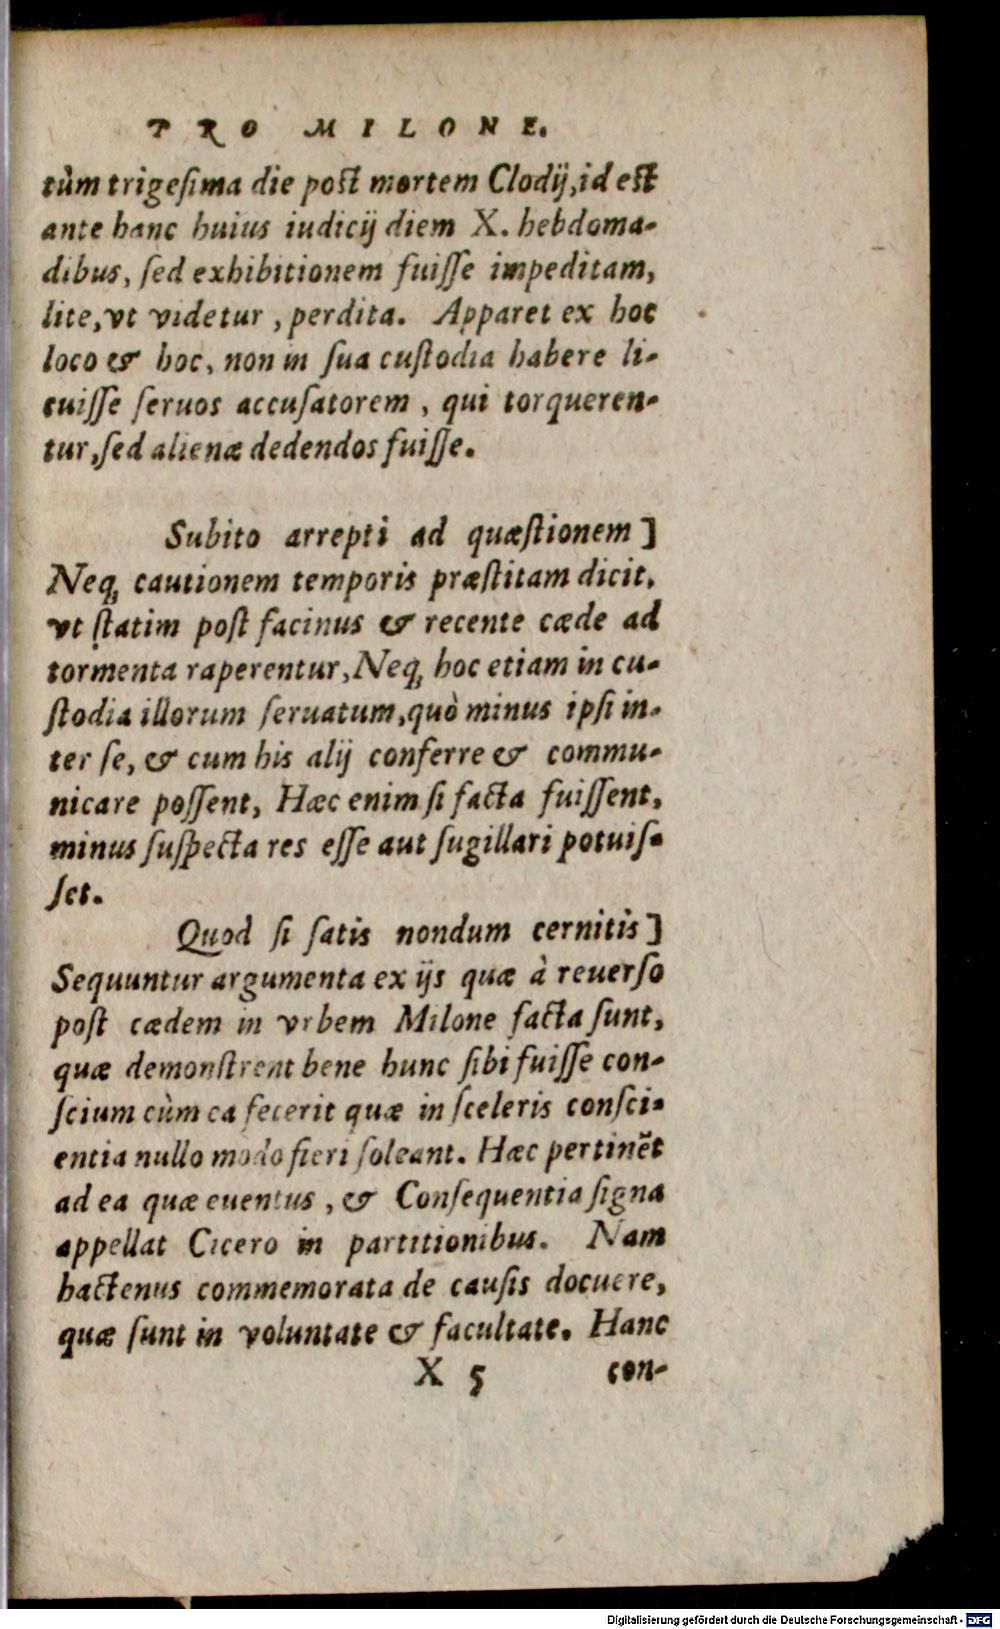 PRO MILONE.
tùm trigeſima die poſt mortem Clodij, id eſt
ante hanc huius iudicij diem X. hebdoma-
dibus, ſed exhibitionem fuiſſe impeditam,
lite, vt videtur, perdita. Apparet ex hoc
loco & hoc, non in ſua cuſtodia habere li-
cuiſſe ſeruos accuſatorem, qui torqueren-
tur, ſed alienæ dedendos fuiſſe.
Subito arrepti ad quæſtionem]
Neq; cautionem temporis præſtitam dicit,
vt ſtatim poſt facinus & recente cæde ad
tormenta raperentur, Neq; hoc etiam in cu-
ſtodia illorum ſeruatum, quò minus ipſi in-
ter ſe, & cum his alij conferre & commu-
nicare poſſent, Hæc enim ſi facta fuiſſent,
minus ſuſpecta res eſſe aut ſugillari potuiſ-
ſet.
Quod ſi ſatis nondum cernitis]
Sequuntur argumenta ex ijs quæ à reuerſo
poſt cædem in vrbem Milone facta ſunt,
quæ demonſtrent bene hunc ſibi fuiſſe con-
ſcium cùm ea fecerit quæ in ſceleris conſci-
entia nullo modo fieri ſoleant. Hæc pertinẽt
ad ea quæ euentus, & Conſequentia ſigna
appellat Cicero in partitionibus. Nam
hactenus commemorata de cauſis docuere,
quæ ſunt in voluntate & facultate. Hanc
X 5 con-
Digitalisierung gefördert durch die Deutsche Forschungsgemeinschaft - DFG